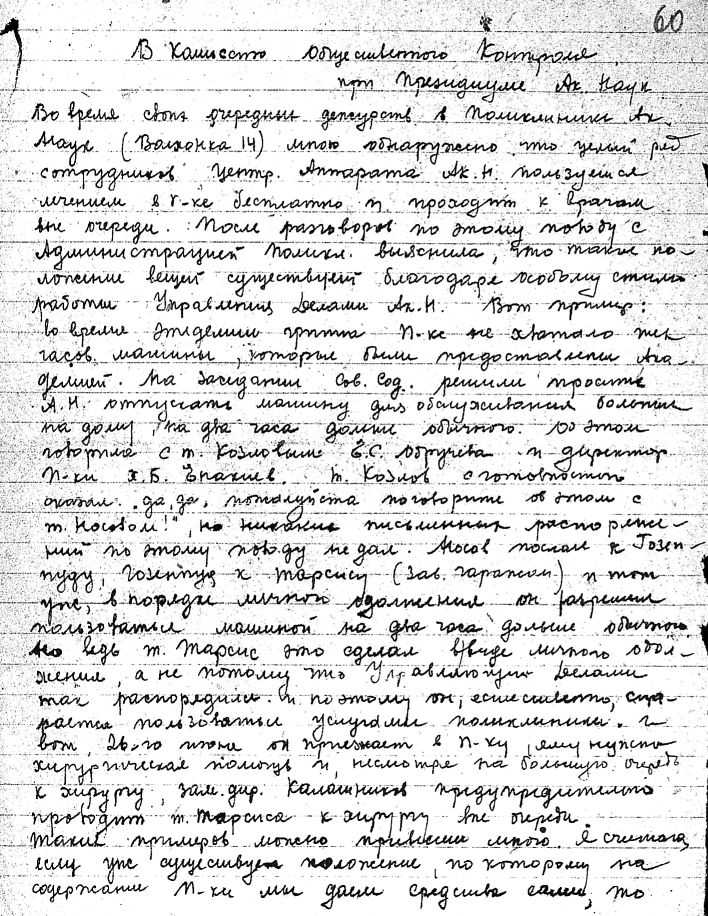 60
В Комиссию Общественного Контроля
при Президиуме Ак. Наук
Во время своих очередных дежурств в Поликлинике Ак.
Наук (Волхонка 14) мною обнаружено что целый ряд
сотрудников Центр. Аппарата Ак. Н. пользуется
лечением в п-ке бесплатно и проходит к врачам
вне очереди. После разговоров по этому поводу с
Администрацией Поликл. выяснила, что такое по-
ложение вещей существует благодаря особому стилю
работы Управления Делами Ак. Н. Вот пример:
во время эпидемии гриппа П-ке не хватало тех
часов машины, которые были предоставлены Ака-
демией. На заседании Сов. Сод. решили просить
А.Н. отпускать машину для обслуживания больных
на дому, на два часа дольше обычного. Об этом
говорила с т. Козловым Е.С. Обручева и директор
П-ки Х.Б. Епакиев. т. Козлов с готовностью
сказал "да, да, пожалуйста поговорите об этом с
т. Носовым!", но никаких письменных распоряже-
ний по этому поводу не дал. Носов послал к Гозен-
пуду, Гозенпуд к Тарсису (Зав. гаражом) и тот
уже, в порядке личного одолжения он разрешил
пользоваться машиной на два часа дольше обычного
Но ведь т. Тарсис это сделал в виде личного одол-
жения, а не потому что Управляющий Делами
так распорядился. и поэтому он, естественно, ста-
рается пользоваться услугами поликлиники. И
вот, 26-го июня он приезжает в П-ку, ему нужна
хирургическая помощь и, несмотря на большую очередь
к хирургу, зам. дир. Калашников предупредительно
проводит т. Тарсиса к хирургу вне очереди.
Таких примеров можно привести много. Я считаю,
если уже существует положение, по которому на
содержание П-ки мы даем средства сами, то